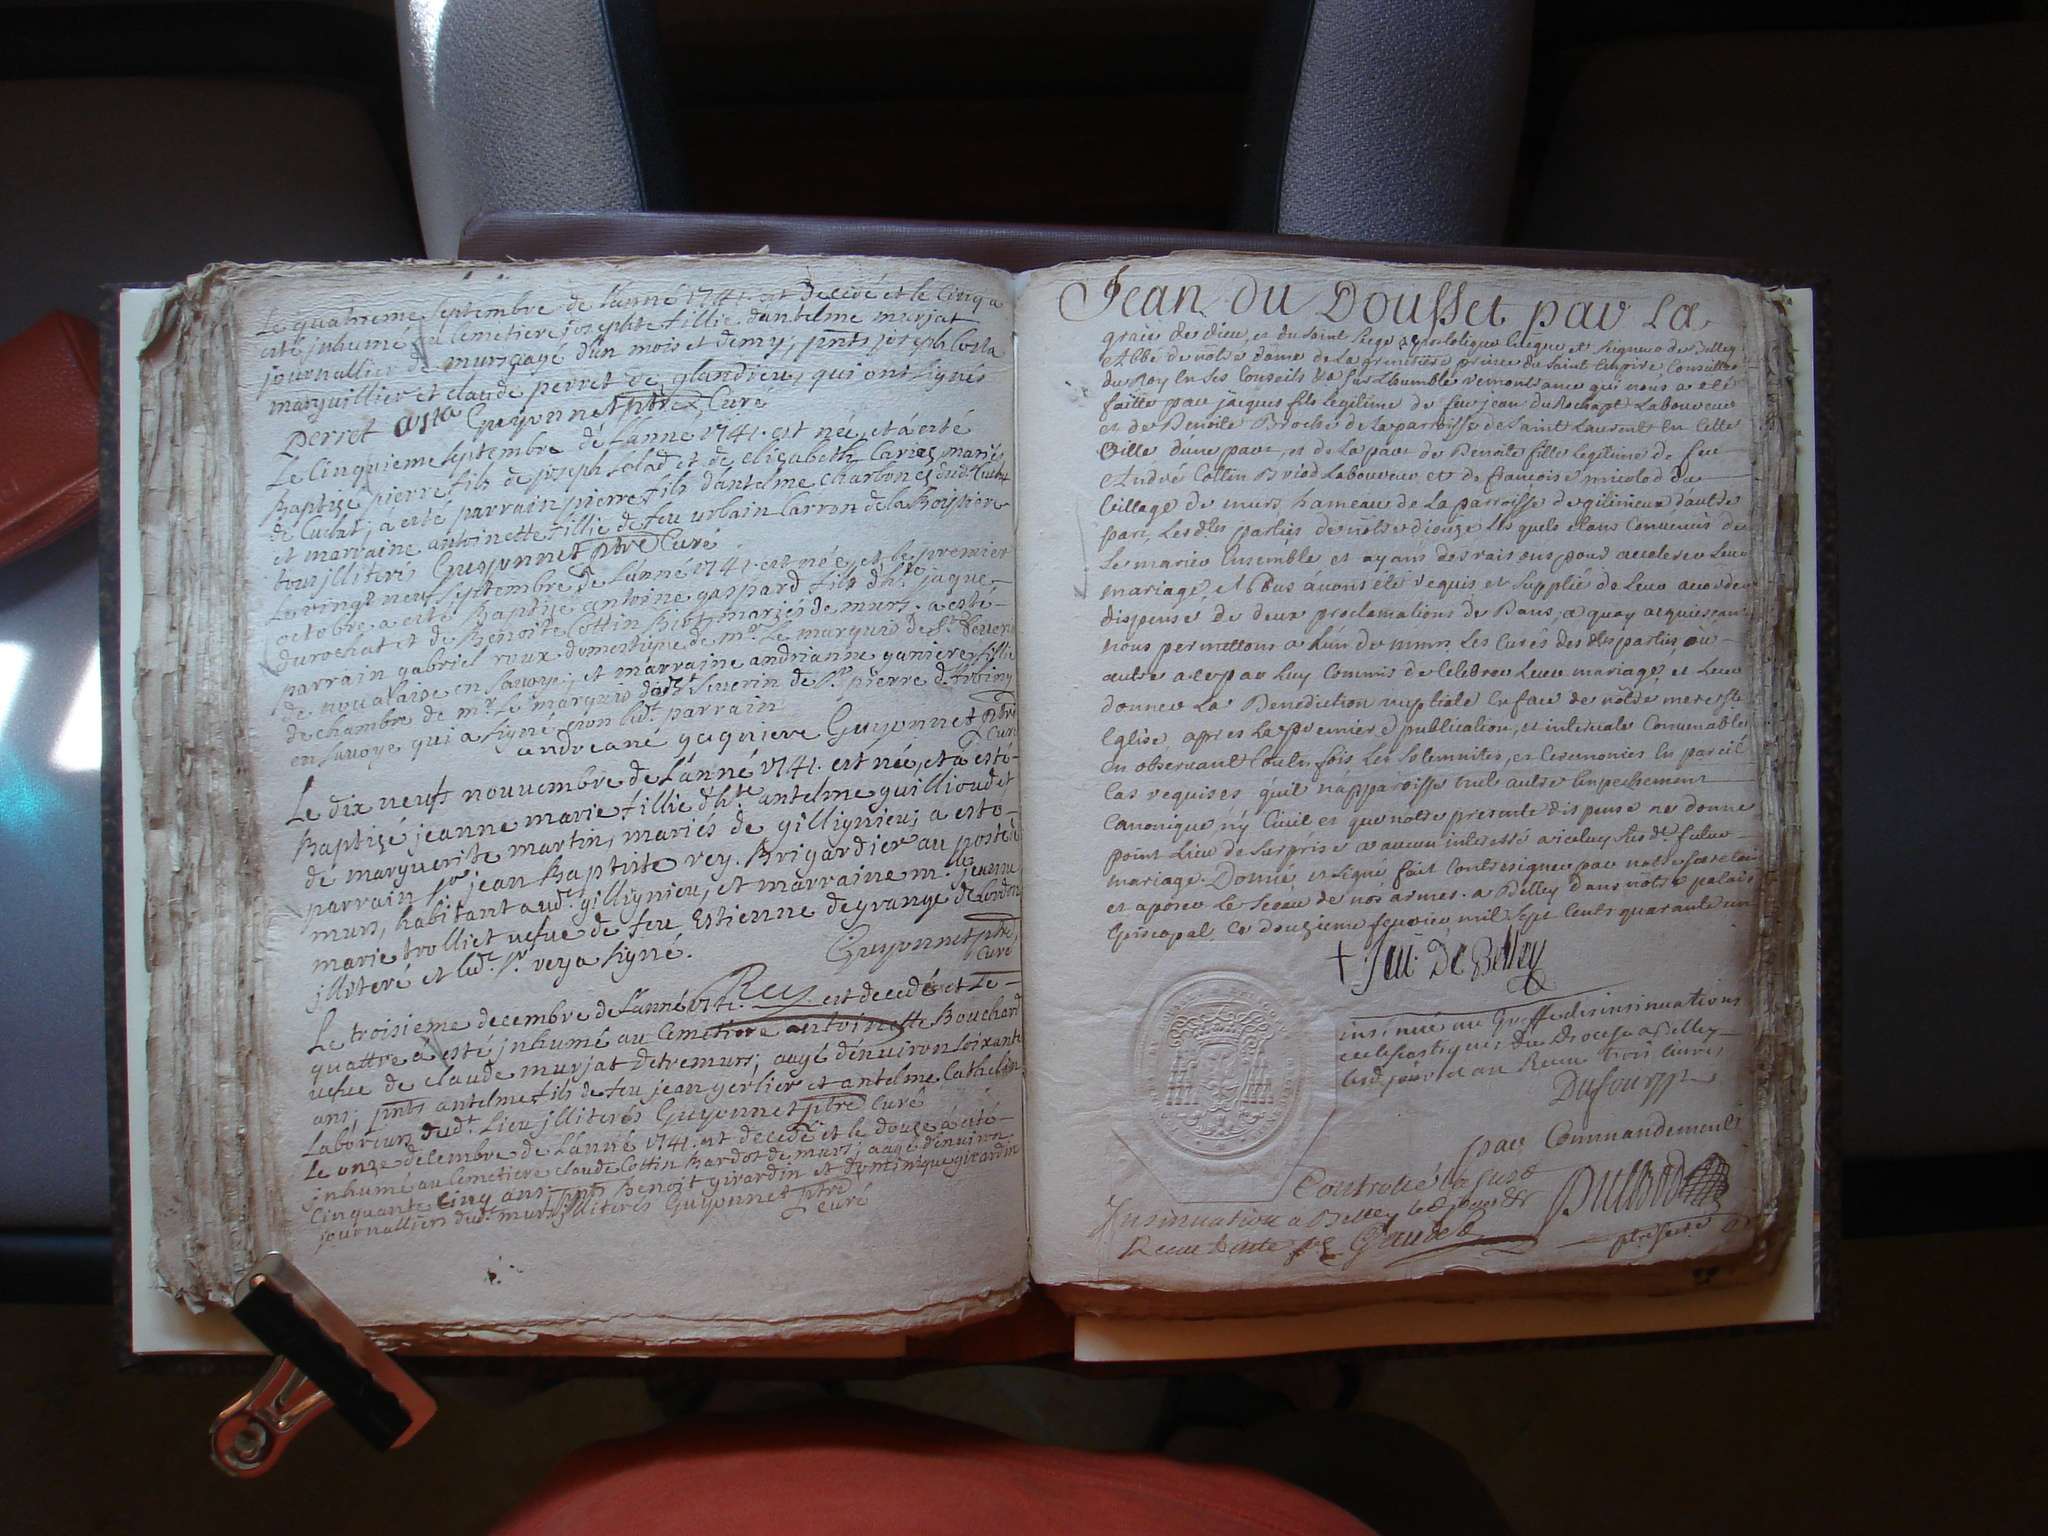 Le quatrieme septembre de l'anné 1741. est decedé et le cinq a
esté jnhumé au cemetiere josephte fillie d'antelme murjat
journallier de murs, agé d'un mois et demy; pnts joseph Costa
marguillier et claude perret de glandieu, qui ont signés
perret Costa Guyonnet ptre Curé
Le Cinquieme septembre de L'anné 1741. est né, et a esté
Baptizé pierre fils de joseph Colad et de elizabeth Carier mariés
de Culat; a esté parrain pierre fils d'antelme charbonet dudt Cula
et marraine antoinette fillie de feu urbain Carron de la Boissiere
tous jlliterés Guyonnet ptre Curé
Le vingt neuf septembre de L'anné 1741. est né, et le premier
octobre a esté Baptizé antoine gaspard fils d'hte jaque
durochat et de Benoite Cottin Biot mariés de murs. a esté
parrain gabriel roux domestique de mr Le marquis de St Severin
de noualaise en savoye; et marraine andrianne ganiere fillie
de chambre de mr Le marquis dudt St Severin de St pierre d'Albigny
en savoye qui a signé, non ludt parrain
andreané gagniere Guyonnet ptre
Curé
Le dix neufs nouvembre de L'anné 1741. est née, et a esté
Baptizé jeanne marie fillie d'hte antelme guillioud et
de marguerite martin, mariés de gillignieu; a esté
parrain sr jean Baptiste rey. Brigardier au poste de
murs, habitant audt gillignieu, et marraine mlle jeanne
marie trolliet uefue de feu Estienne degrange de Cordon
jlliteré et ludt sr rey a signé. Guyonnet ptre
Curé
Rey
Le troisieme decembre de L'anné 1741. est decedé et Le
quattre a esté jnhumé au Cemetiere antoinette Bouchard
uefue de claude murjat de tremurs; aagé d'enuiron soixante
ans; pnts antelme fils de feu jean gerlier et antelme Cathelin
Laboreurs dudt Lieu jlliterés Guyonnet ptre Curé
Le onze decembre de L'anné 1741. est decedé et le douze a esté
jnhumé au Cemetiere claude Cottin Bardot de murs; aagé d'enuiron
Cinquante Cinq ans; pnts Benoit girardin et dominique girardin
journalliers dudt murs jlliterés Guyonnet ptre
Curé
Jean du Dousset par la
grace de dieu, et du saint siege apostolique Eveque et seigneur de Belley
Abbé de nôtre dame de la prince du saint Empire Conseiller
du Roy en ses Conseils &a sur l'humble remontrance qui nous a eté
faitte par jacques fils legitime de feu jean duRochapt Laboureur
et de Benoite Broche de la parroisse de saint Laurent En cette
Ville d'une part, et de la part de Benoite fille legitime de feu
André Cottin Briod Laboureur et de françoise micolod du
village de murs hameau de la parroisse de gilinieux d'autre
part, Les dtes parties de nôtre dioceze les quels etans Convenus de
se marier Ensemble et ayans des raisons pour accelerer Leur
mariage, Nous avons eté requis et supplié de Leur accorder
dispense de deux proclamations de Bans, a quoy acquiesçant
nous permettons a l'un de mmrs Les Curés des dtes parties, ou
autre a ce par Luy Commis de Celebrer Leur mariage, et Leur
donner La Benediction nuptiale En face de nôtre mere ste
Eglise apres La premiere publication, et intervale Convenable
En observant toutes fois les solemnités, et Ceremonies En pareil
Cas requises qu'il n'apparoisse nul autre Empechement
Canonique ny Civil et que nôtre presente dispense ne donne
point Lieu de surprise a aucun interessé a iceluy dt futur
mariage. Donné et signé fait Contresigner par nôtre secretaire
et aposer Le sceau de nos armes. a Belley dans nôtre palais
Episcopal Ce douzieme fevrier mil sept Cents quarante un
+ Jean Ev. De Belley
insinué au Greffe des insinuations
ecclesiastiques du Diocese de Belley
led. jour et an Receu trois livres
Dufour
par Commandement
Controllé
Insinuation a Belley led. jour
Receu Gaudet